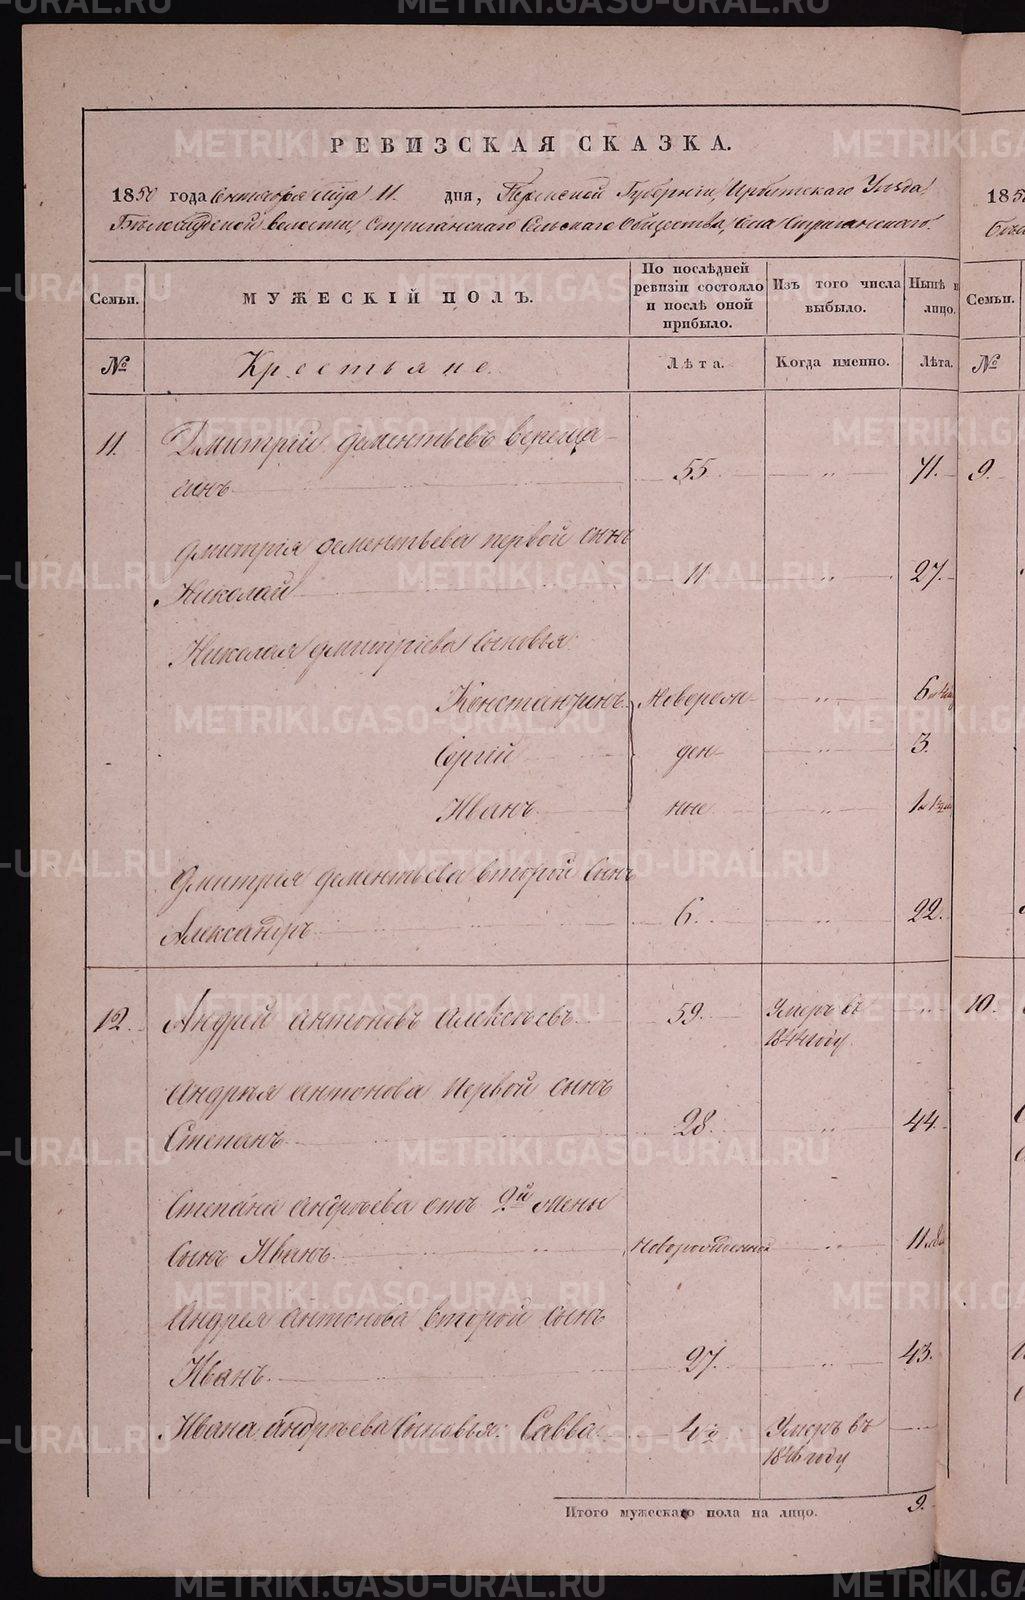 РЕВИЗСКАЯ СКАЗКА.
1850 года Сентября м-ца 11. дня, Пермской Губернiи, Ирбитскаго Уѣзда,
Бѣлослудской волости, Стриганскаго Сельскаго Общества, Села Стриганскаго.
Семьи.
МУЖЕСКIЙ ПОЛЪ.
По послѣдней ревизiи состояло и послѣ оной прибыло.
Изъ того числа выбыло.
Нынѣ
лицо.
№
Крестьяне.
Лѣта.
Когда именно.
Лѣта.
11. Дмитрiй Дементьевъ Вереща-
гинъ 55. " 71.
Дмитрiя Дементьева первой сынъ
Николай 11 " 27.
Николая Дмитрiева сыновья:
Константинъ новорож- " 6
Сергiй ден- " 3.
Иванъ ные " 1
Дмитрiя Дементьева второй сынъ
Александръ 6. " 22.
12. Андрей Антоновъ Алексѣевъ 59. Умеръ въ "
1844 году
Андрея Антонова первой сынъ
Степанъ 28. " 44.
Степана Андрѣева отъ 2й жены
сынъ Иванъ новорожденной " 11
Андрея Антонова второй сынъ
Иванъ 27. " 43.
Ивана Андрѣева сыновья: Савва Умеръ въ
1846 году
Итого мужескаго пола на лицо. 9.
185
Семьи.
№
9.
10.
METRIKI.GASO-URAL.RU